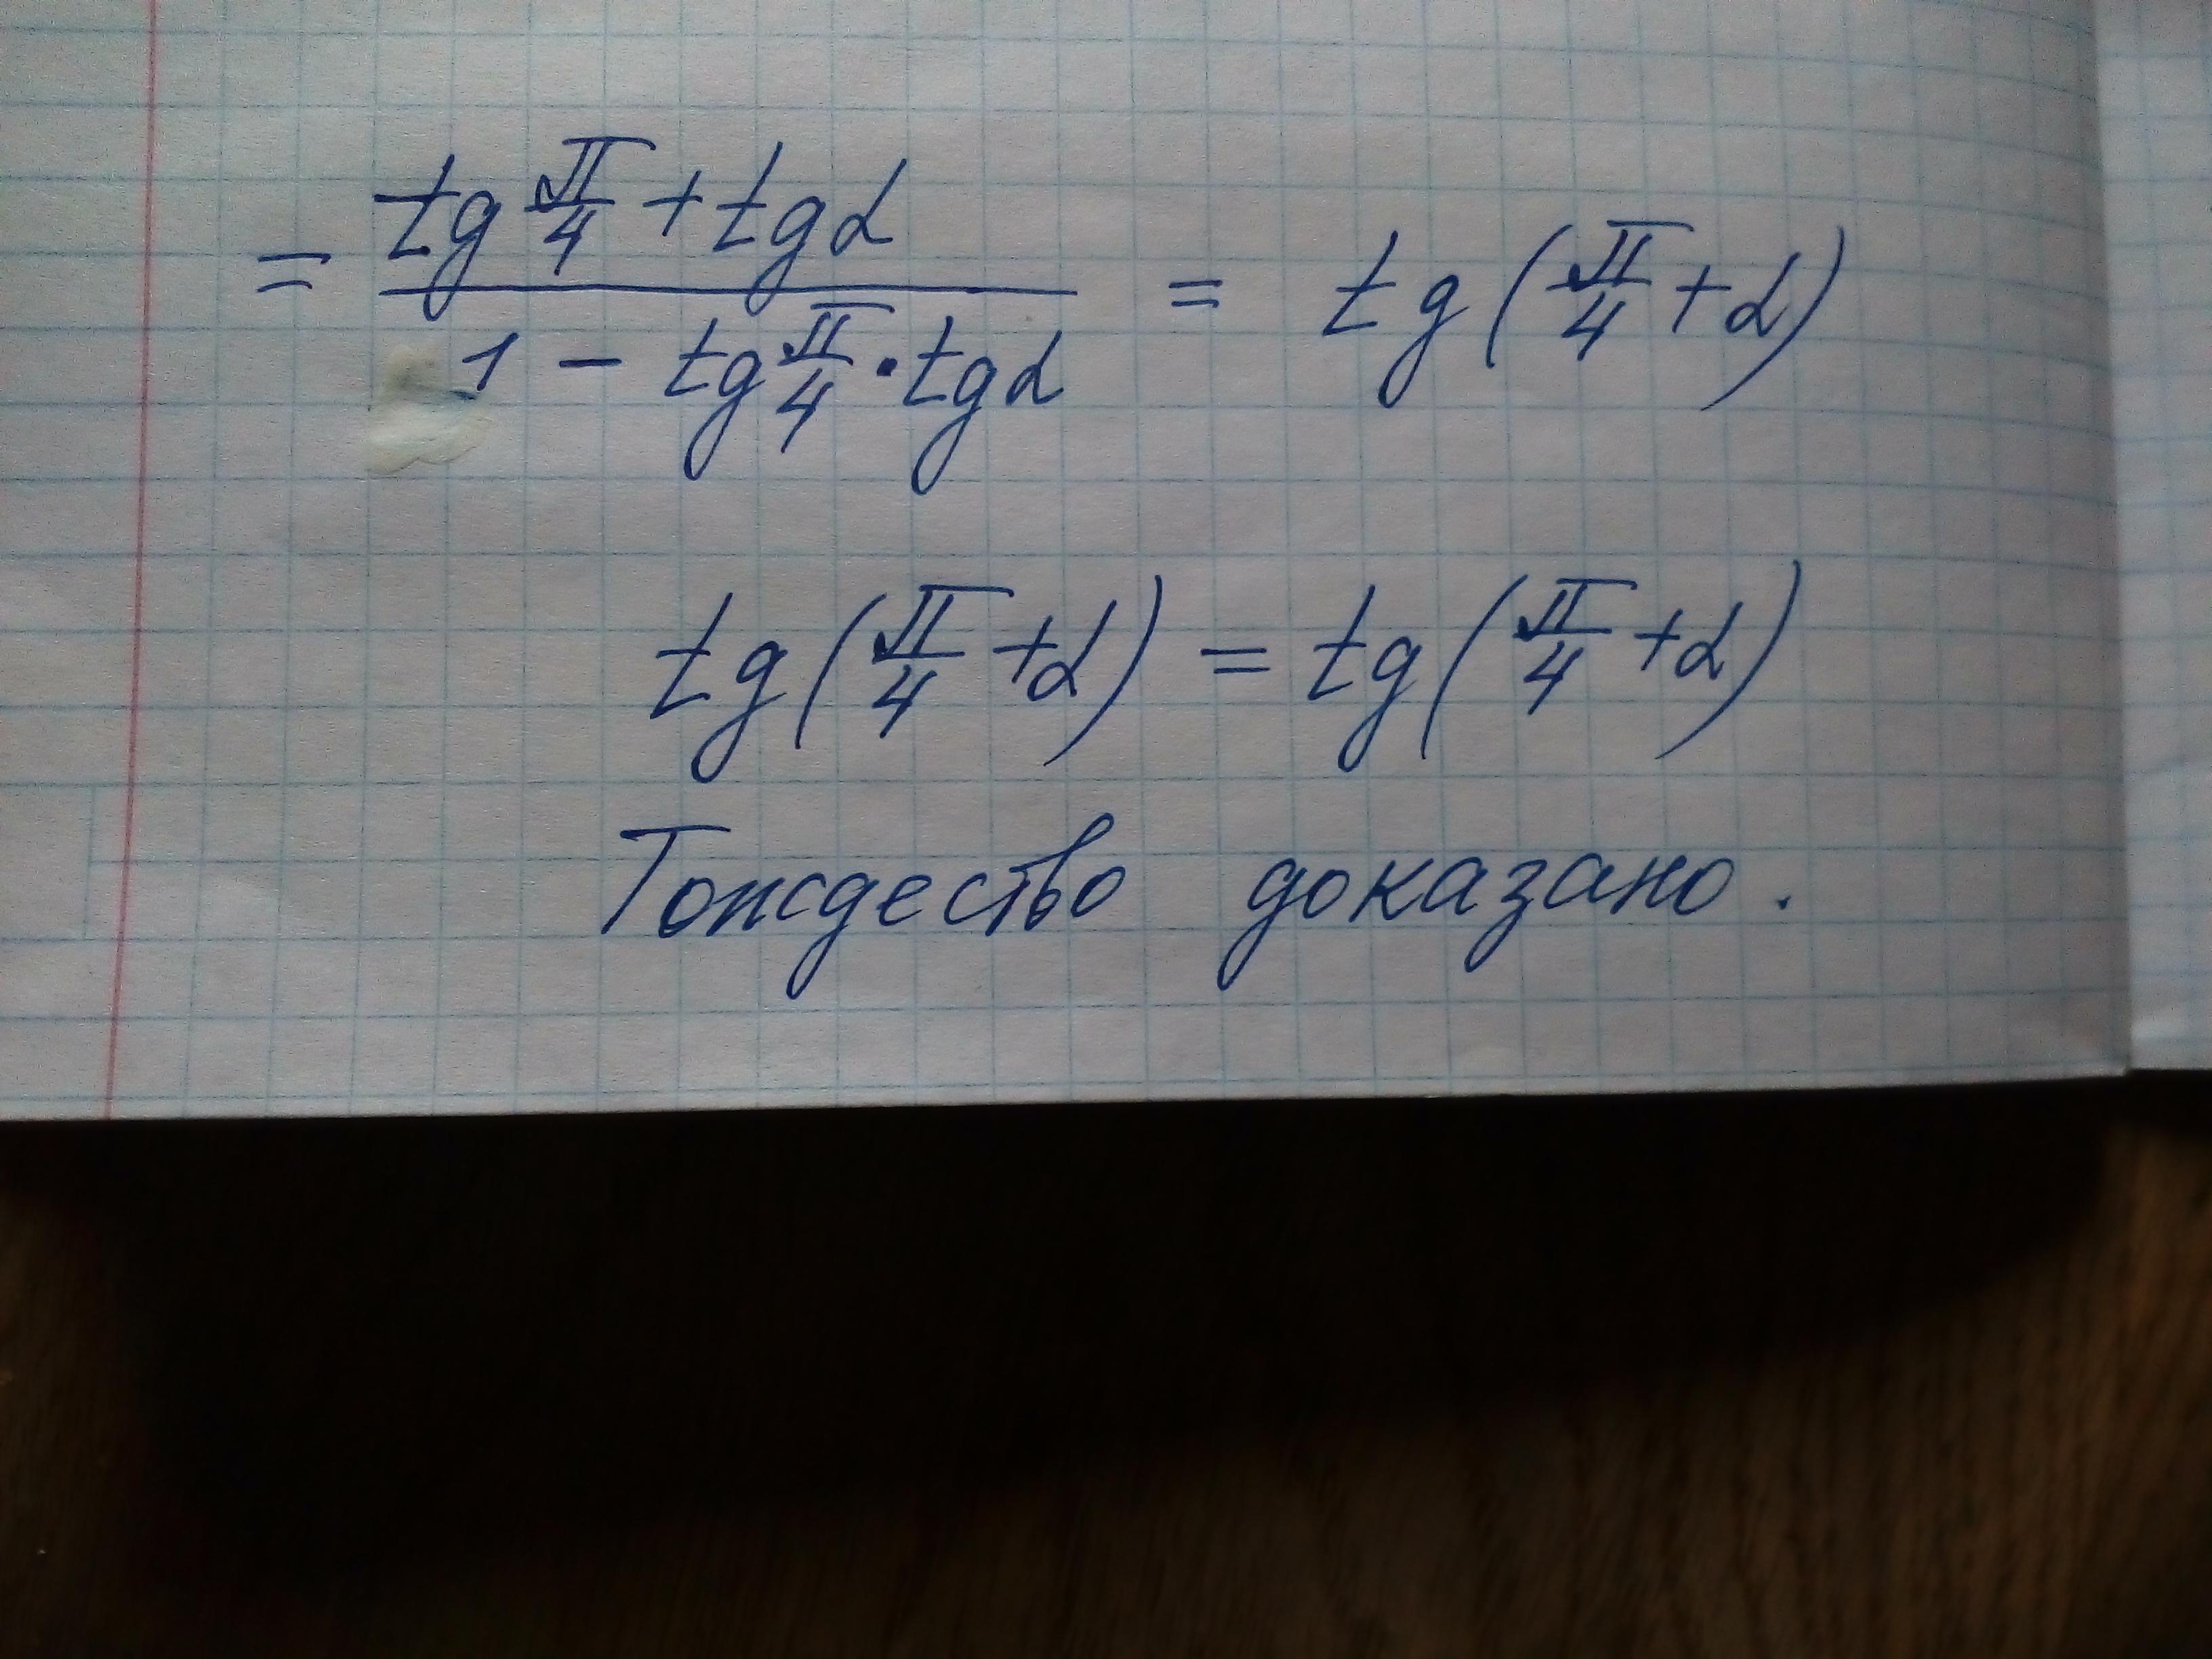 = (tg π/4 + tg α) / (1 − tg π/4 · tg α) = tg(π/4 + α)
tg(π/4 + α) = tg(π/4 + α)
Тождество доказано.